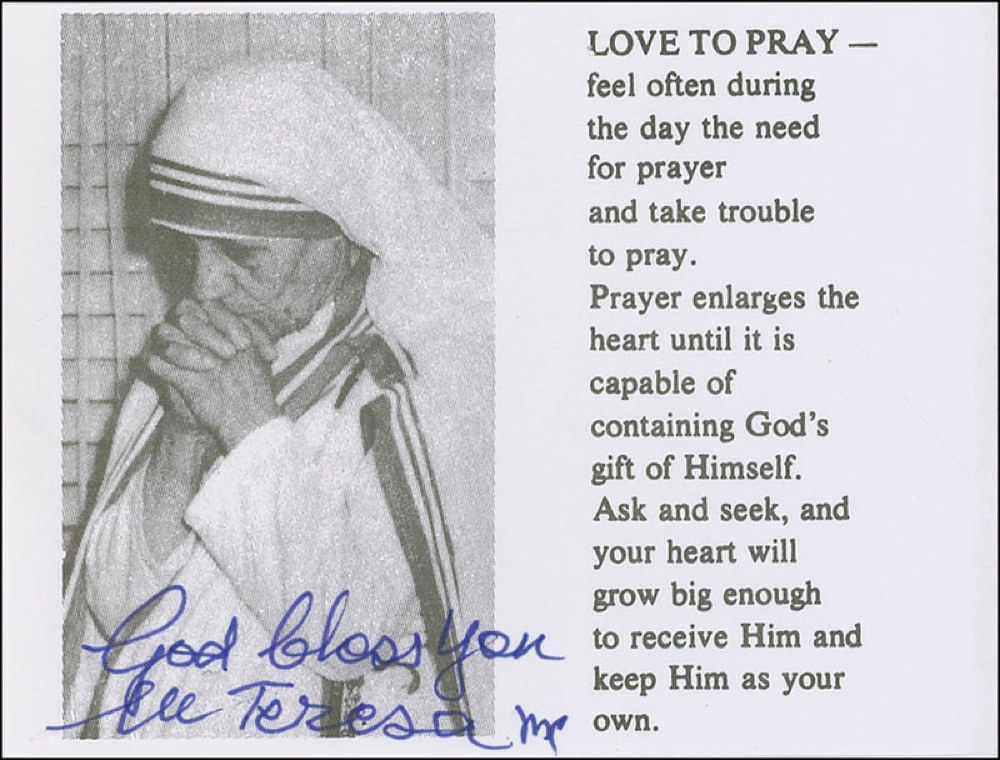 LOVE TO PRAY —
feel often during
the day the need
for prayer
and take trouble
to pray.
Prayer enlarges the
heart until it is
capable of
containing God's
gift of Himself.
Ask and seek, and
your heart will
grow big enough
to receive Him and
keep Him as your
own.
God bless you
Teresa mc